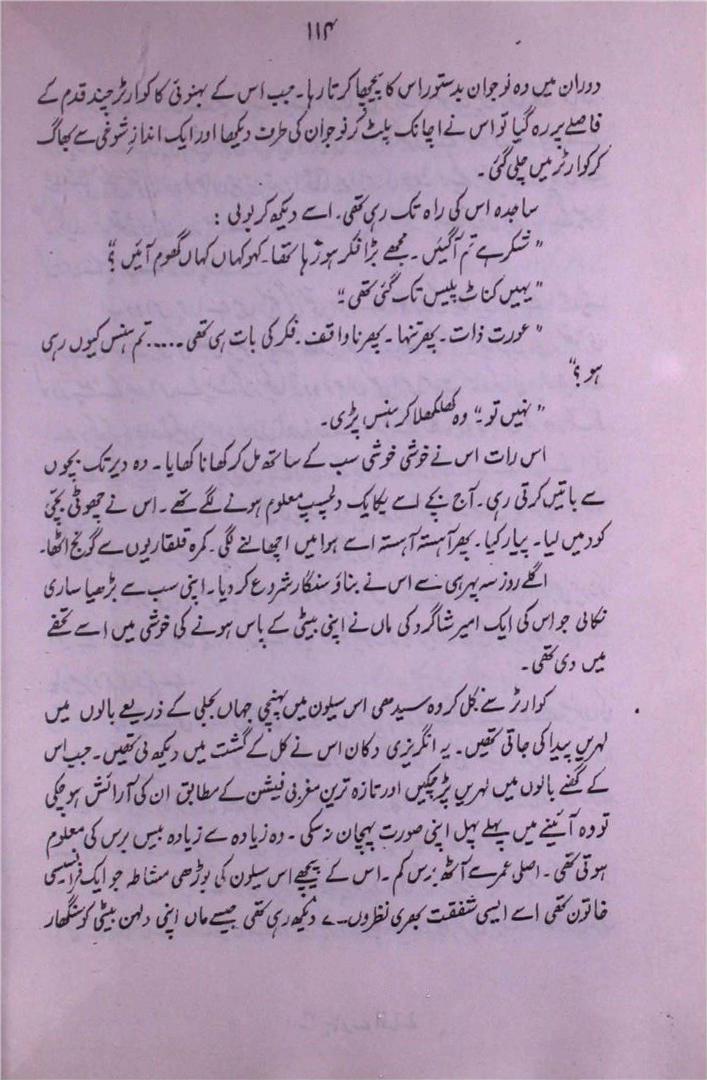 ۱۱۴
دوران میں وہ نوجوان بدستور اس کا پیچھا کرتا رہا۔ جب اس کے بہنوئی کا کوارٹر چند قدم کے
فاصلے پر رہ گیا تو اس نے اچانک پلٹ کر نوجوان کی طرف دیکھا اور ایک اندازِ شوخی سے بھاگ
کر کوارٹر میں چلی گئی۔
ساجدہ اس کی راہ تک رہی تھی۔ اسے دیکھ کر بولی :
"شکر ہے تم آ گئیں۔ مجھے بڑا فکر ہو رہا تھا۔ کہو کہاں کہاں گھوم آئیں ؟"
"یہیں کناٹ پلیس تک گئی تھی۔"
"عورت ذات۔ پھر تنہا۔ پھر ناواقف۔ فکر کی بات ہی تھی ..... تم ہنس کیوں رہی
ہو ؟"
"نہیں تو۔" وہ کھلکھلا کر ہنس پڑی۔
اس رات اس نے خوشی خوشی سب کے ساتھ مل کر کھانا کھایا۔ وہ دیر تک بچوں
سے باتیں کرتی رہی۔ آج بچے اسے یکایک دلچسپ معلوم ہونے لگے تھے۔ اس نے چھوٹی بچی
گود میں لیا۔ پیار کیا۔ پھر آہستہ آہستہ اسے ہوا میں اچھالنے لگی۔ کمرہ قلقاریوں سے گونج اٹھا۔
اگلے روز سہ پہر ہی سے اس نے بناؤ سنگار شروع کر دیا۔ اپنی سب سے بڑھیا ساری
نکالی جو اس کی ایک امیر شاگرد کی ماں نے اپنی بیٹی کے پاس ہونے کی خوشی میں اسے تحفے
میں دی تھی۔
کوارٹر سے نکل کر وہ سیدھی اس سیلون میں پہنچی جہاں بجلی کے ذریعے بالوں میں
لہریں پیدا کی جاتی تھیں۔ یہ انگریزی دکان اس نے کل کے گشت میں دیکھ لی تھیں۔ جب اس
کے گھنے بالوں میں لہریں پڑ چکیں اور تازہ ترین مغربی فیشن کے مطابق ان کی آرائش ہو چکی
تو وہ آئینے میں پہلے پہل اپنی صورت پہچان نہ سکی۔ وہ زیادہ سے زیادہ بیس برس کی معلوم
ہوتی تھی۔ اصلی عمر سے آٹھ برس کم۔ اس کے پیچھے اس سیلون کی بوڑھی مشاطہ جو ایک فرانسیسی
خاتون تھی اسے ایسی شفقت بھری نظروں سے دیکھ رہی تھی جیسے ماں اپنی دلہن بیٹی کو سنگھار